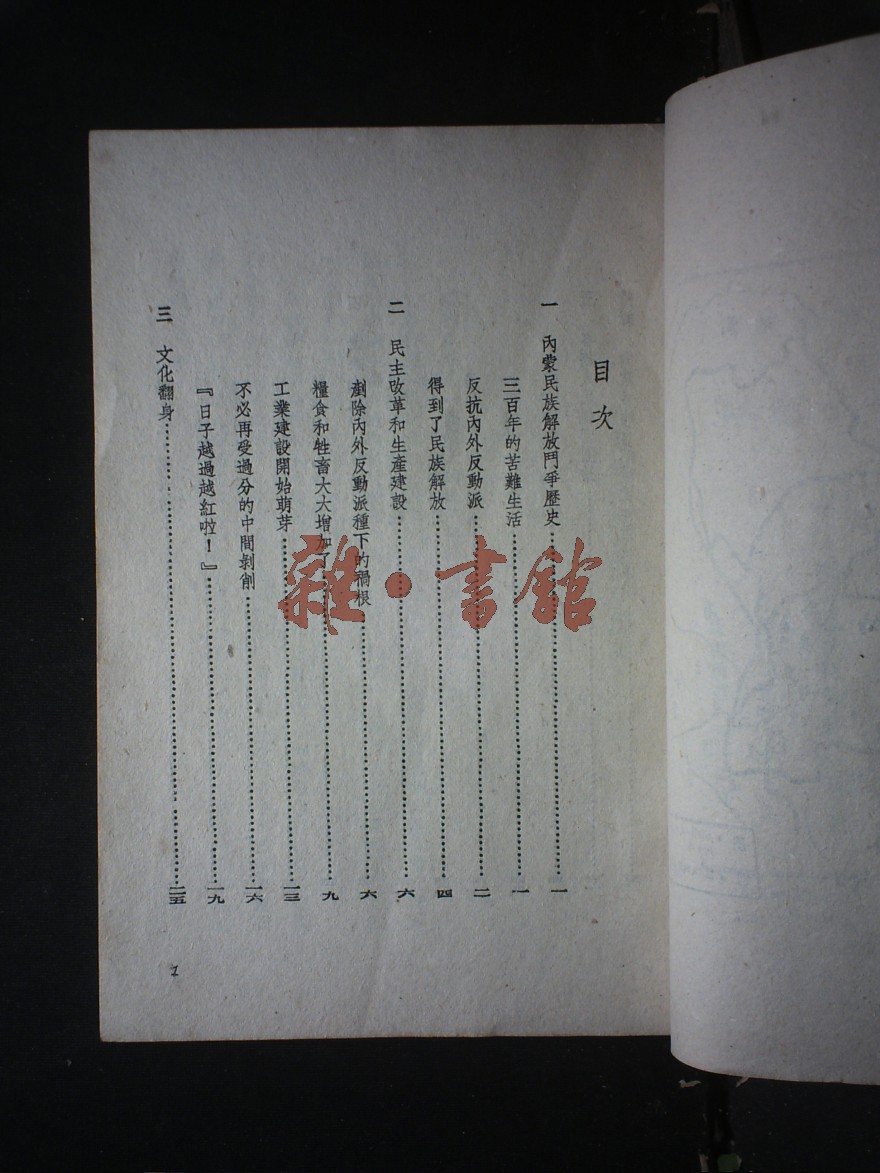 目次
一 內蒙民族解放鬥爭歷史…………一
三百年的苦難生活…………一
反抗內外反動派…………二
得到了民族解放…………四
二 民主改革和生產建設…………六
剷除內外反動派種下的禍根…………六
糧食和牲畜大大增加了…………九
工業建設開始萌芽…………一三
不必再受過分的中間剝削…………一六
『日子越過越紅啦！』…………一九
三 文化翻身…………二五
1
雜·書館